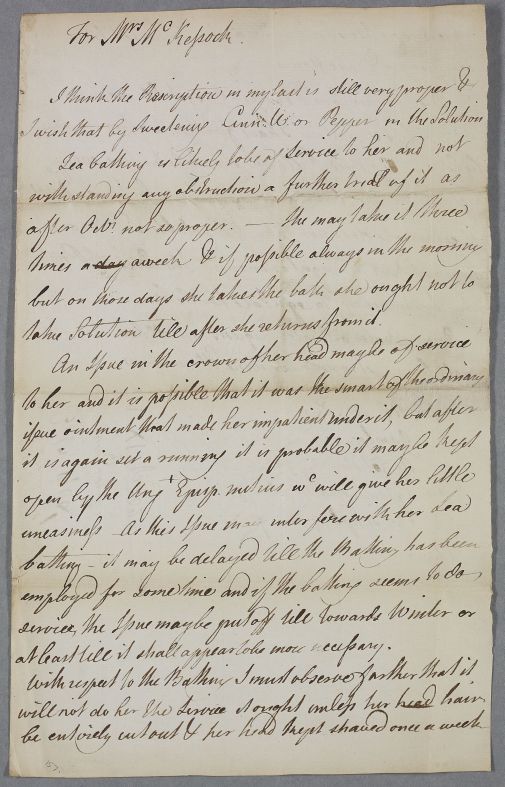 For Mrs Mc Kessock.
I think the Prescription in my last is still very proper &
I wish that by Sweetening Cinn. W. or Pepper in the Solution
Sea bathing is likely to be of Service to her and not
withstanding any obstruction a further trial of it as
after Octr. not so proper. — she may take it three
times a day a week & if possible always in the morning
but on those days she takes the bath she ought not to
take Solution till after she returns from it.
An Issue in the crown of her head may be of service
to her and it is possible that it was the smart of the ordinary
issue ointment that made her impatient under it, but after
it is again set a running it is probable it may be kept
open by the Ungt Epissp. mitius wc will give her little
uneasiness – As this Issue may interfere with her Sea
bathing – it may be delayed till the Bathing has been
employed for some time and if the bathing seems to do
service, the Issue may be put off till towards Winter or
at least till it shall appear to be more necessary.
With respect to the Bathing I must observe farther that it
will not do her the Service it ought unless her head hair
be entirely cut out & her head kept shaved once a week
157.